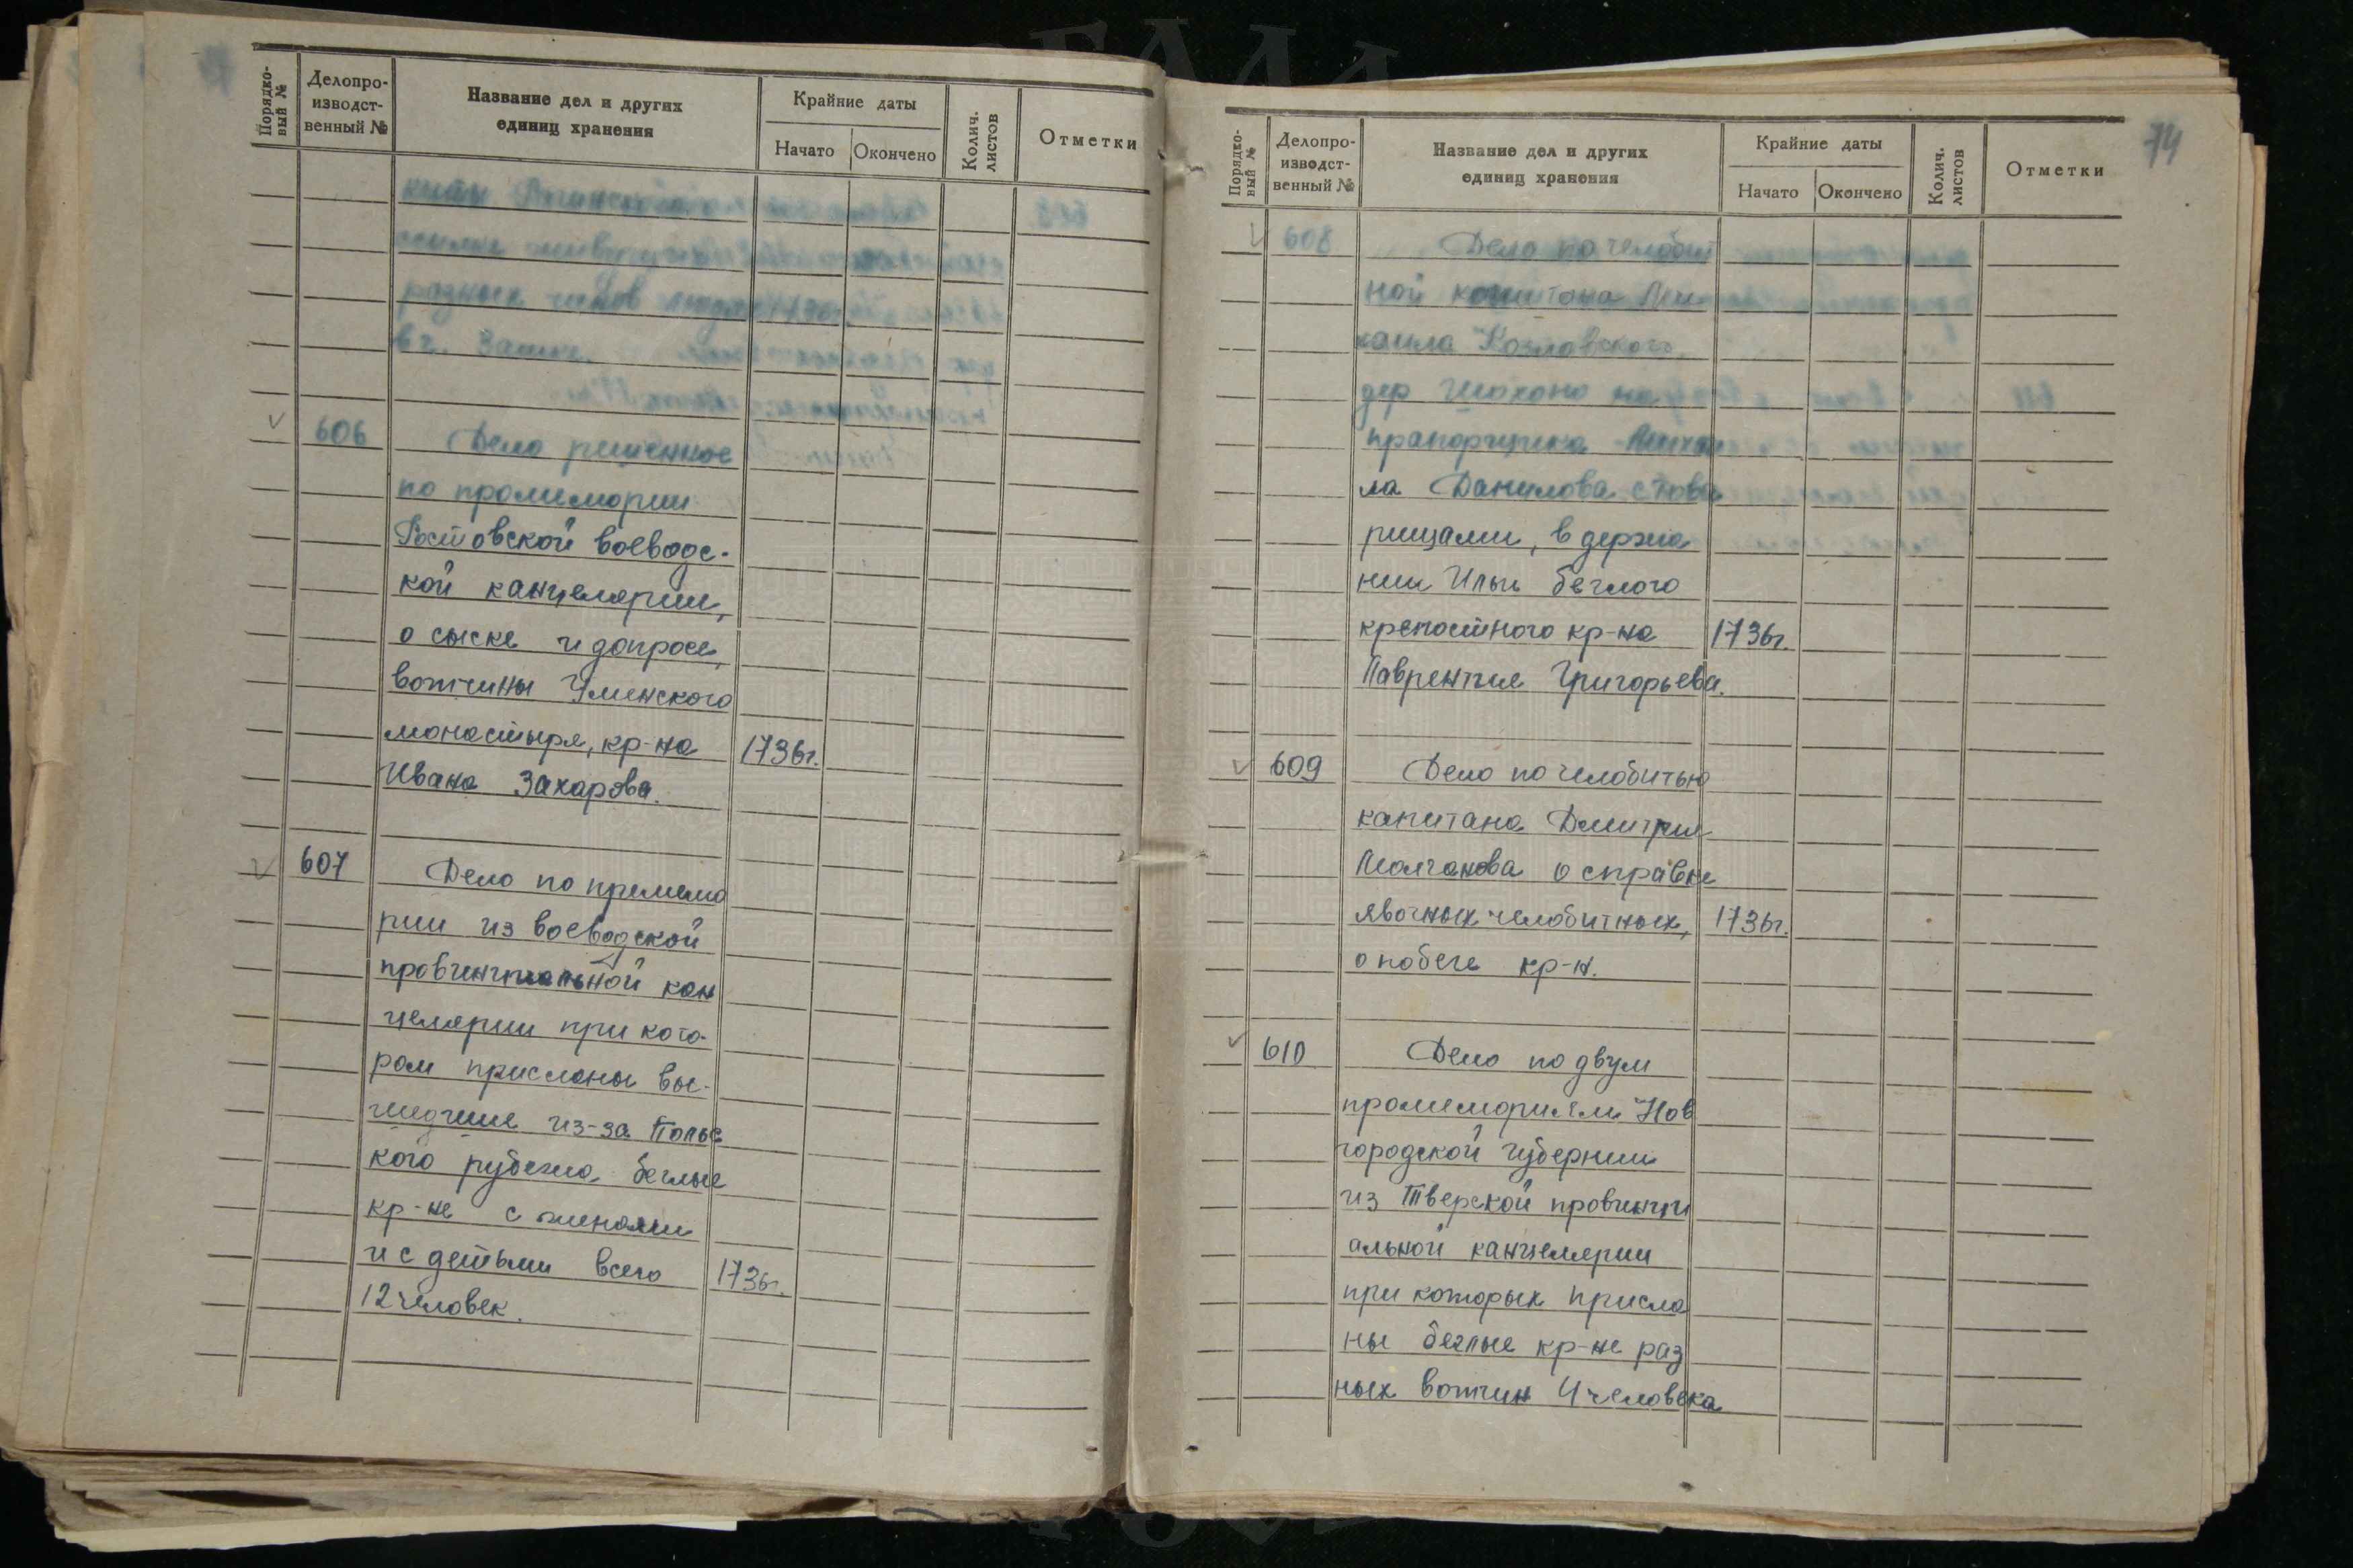 Порядко-
вый №
Делопро-
изводст-
венный №
Название дел и других
единиц хранения
Крайние даты
Начато
Окончено
Колич.
листов
Отметки
разных чинов
в г.
606
Дело решенное
по промемории
Ростовской воеводс-
кой канцелярии,
о сыске и допросе,
вотчины Улменского
монастыря, кр-на
1736г.
Ивана Захарова.
607
Дело по примемо
рии из воеводской
провинциальной кан
целярии при кото-
ром присланы вы-
шедшие из-за Польс
кого рубежа беглые
кр-не с женами
и с детьми всего
1736г.
12 человек.
74
Порядко-
вый №
Делопро-
изводст-
венный №
Название дел и других
единиц хранения
Крайние даты
Начато
Окончено
Колич.
листов
Отметки
608
Дело по челобит
ной капитана Ми
хаила Козлавского,
дер на
прапорщика Михаи
ла Данилова с това
рищами, в держа
нии Ильи беглого
крепостного кр-на
1736г.
Лаврентия Григорьева.
609
Дело по челобитью
капитана Дмитрия
Молчанова о справке
явочных челобитных,
1736г.
о побеге кр-н.
610
Дело по двум
промемориям Нов
городской губернии
из Тверской провинци
альной канцелярии
при которых присла
ны беглые кр-не раз
ных вотчин 4 человека